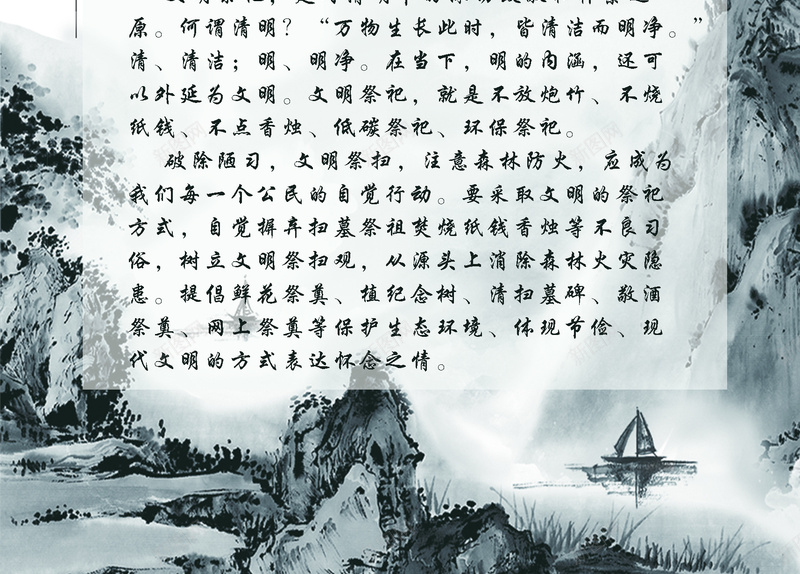 原。何谓清明？“万物生长此时，皆清洁而明净。”
清、清洁；明、明净。在当下，明的内涵，还可
以外延为文明。文明祭祀，就是不放炮竹、不烧
纸钱、不点香烛、低碳祭祀、环保祭祀。
破除陋习，文明祭扫，注意森林防火，应成为
我们每一个公民的自觉行动。要采取文明的祭祀
方式，自觉摒弃扫墓祭祖焚烧纸钱香烛等不良习
俗，树立文明祭扫观，从源头上消除森林火灾隐
患。提倡鲜花祭奠、植纪念树、清扫墓碑、敬酒
祭奠、网上祭奠等保护生态环境、体现节俭、现
代文明的方式表达怀念之情。